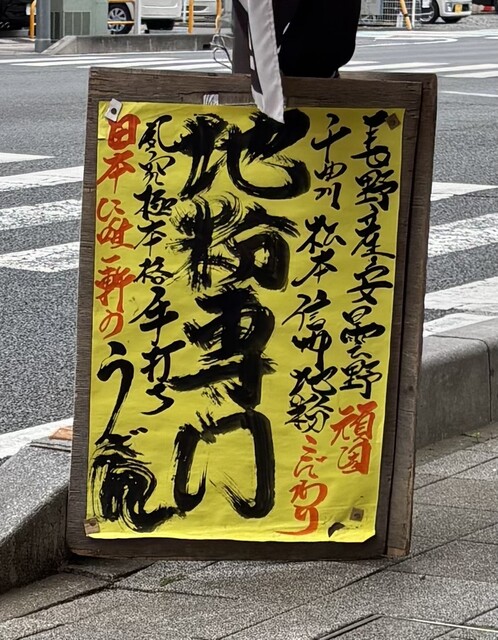 長野産安曇野 頑固
千曲川 松本 信州地粉 こだわり
地粉専門
究極本格手打ち
日本に唯一軒の うどん